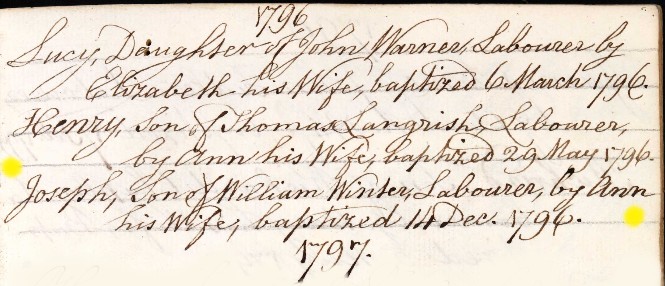 1796
Lucy, Daughter of John Warner, Labourer by
Elizabeth his Wife, baptized 6 March 1796.
Henry, Son of Thomas Langrish, Labourer,
by Ann his Wife, baptized 29 May 1796.
Joseph, Son of William Winter, Labourer, by Ann
his Wife, baptized 14 Dec. 1796.
1797.